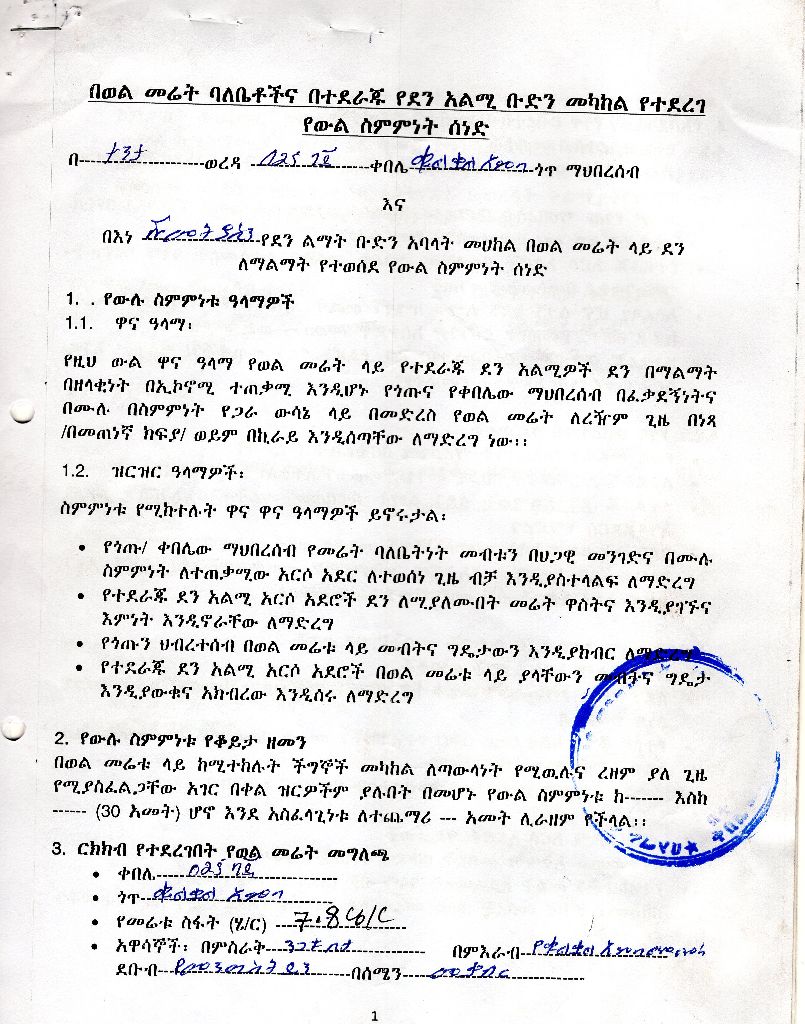 በወል መሬት ባለቤቶችና በተደራጁ የደን አልሚ ቡድን መካከል የተደረገ
የውል ስምምነት ሰነድ
በ-------------------ወረዳ -------------------ቀበሌ-------------------ጎጥ ማህበረሰብ
እና
በእነ -------------------የደን ልማት ቡድን አባላት መሀከል በወል መሬት ላይ ደን
ለማልማት የተወሰደ የውል ስምምነት ሰነድ
1. . የውሉ ስምምነቱ ዓላማዎች
1.1. ዋና ዓላማ፡
የዚህ ውል ዋና ዓላማ የወል መሬት ላይ የተደራጁ ደን አልሚዎች ደን በማልማት
በዘላቂነት በኢኮኖሚ ተጠቃሚ እንዲሆኑ የጎጡና የቀበሌው ማህበረሰብ በፈቃደኝነትና
በሙሉ በስምምነት የጋራ ውሳኔ ላይ በመድረስ የወል መሬት ለረዥም ጊዜ በነጻ
/በመጠነኛ ክፍያ/ ወይም በኪራይ እንዲሰጣቸው ለማድረግ ነው፡፡
1.2. ዝርዝር ዓላማዎች፡
ስምምነቱ የሚከተሉት ዋና ዋና ዓላማዎች ይኖሩታል፡
• የጎጡ/ ቀበሌው ማህበረሰብ የመሬት ባለቤትነት መብቱን በህጋዊ መንገድና በሙሉ
ስምምነት ለተጠቃሚው አርሶ አደር ለተወሰነ ጊዜ ብቻ እንዲያስተላልፍ ለማድረግ
• የተደራጁ ደን አልሚ አርሶ አደሮች ደን ለሚያለሙበት መሬት ዋስትና እንዲያገኙና
እምነት እንዲኖራቸው ለማድረግ
• የጎጡን ህብረተሰብ በወል መሬቱ ላይ መብትና ግዴታውን እንዲያከብር ለማድረግ
• የተደራጁ ደን አልሚ አርሶ አደሮች በወል መሬቱ ላይ ያላቸውን መብትና ግዴታ
እንዲያውቁና አክብረው እንዲሰሩ ለማድረግ
2. የውሉ ስምምነቱ የቆይታ ዘመን
በወል መሬቱ ላይ ከሚተከሉት ችግኞች መካከል ለጣውላነት የሚዉሉና ረዘም ያለ ጊዜ
የሚያስፈልጋቸው አገር በቀል ዝርዎችም ያሉበት በመሆኑ የውል ስምምነቱ ከ------- እስከ
------ (30 አመት) ሆኖ እንደ አስፈላጊነቱ ለተጨማሪ --- አመት ሊራዘም የችላል፡፡
3. ርክክብ የተደረገበት የወል መሬት መግለጫ
• ቀበሌ-------------------
• ጎጥ-------------------
• የመሬቱ ስፋት (ሄ/ር) ---7.8-------------------
• አዋሳኞች፡ በምስራቅ------------------- በምእራብ-------------------
ደቡብ-------------------በሰሜን-------------------
1